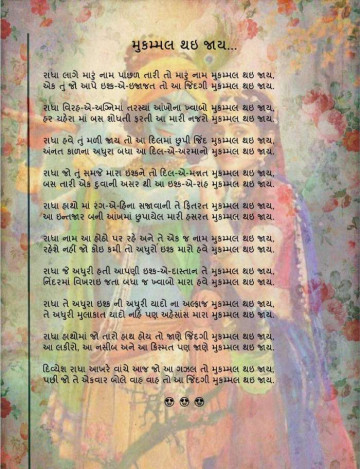 મુકમ્મલ થઇ જાય...
રાધા લાગે મારું નામ પાછળ તારી તો મારું નામ મુકમ્મલ થઇ જાય,
એક તું જો આપે ઇશ્ક-એ-ઇજાજત તો આ જિંદગી મુકમ્મલ થઇ જાય.
રાધા વિરહ-એ-અગ્નિમા તરસ્યા આંખોના ખ્વાબો મુકમ્મલ થઇ જાય,
હર ચહેરા માં બસ શોધતી ફરતી આ મારી નજરો મુકમ્મલ થઇ જાય.
રાધા હવે તું મળી જાય તો આ દિલમાં છુપી જિદ મુકમ્મલ થઇ જાય,
અનંત કાળના અધુરા બધા આ દિલ-એ-અરમાનો મુકમ્મલ થઇ જાય.
રાધા જો તું સમજે મારા ઇશ્કને તો દિલ-એ-મન્નત મુકમ્મલ થઇ જાય,
બસ તારી એક દુવાની અસર થી આ ઇશ્ક-એ-રાહ મુકમ્મલ થઇ જાય.
રાધા હાથો માં રંગ-એ-હિના સજાવાની તે ફિતરત મુકમ્મલ થઇ જાય,
આ ઇન્તજાર બની આંખમાં છુપાયેલ મારી હસરત મુકમ્મલ થઇ જાય.
રાધા નામ આ હોઠો પર રહે અને તે એક જ નામ મુકમ્મલ થઇ જાય,
રહેશે નહીં જો કોઇ કમી તો અધુરો ઇશ્ક મારો હવે મુકમ્મલ થઇ જાય.
રાધા જે અધુરી હતી આપણી ઇશ્ક-એ-દાસ્તાન તે મુકમ્મલ થઇ જાય,
નિદરમાં વિખરાઇ જતા બધા જ ખ્વાબો મારા હવે મુકમ્મલ થઇ જાય.
રાધા તે અધુરા ઇશ્ક ની અધુરી યાદો ના અલ્ફાજ મુકમ્મલ થઇ જાય,
તે અધુરી મુલાકાત યાદો નહિં પણ અહેસાસ મારા મુકમ્મલ થઇ જાય.
રાધા હાથોમાં જો તારો હાથ હોય તો જાણે જિંદગી મુકમ્મલ થઇ જાય,
આ લકીરો, આ નસીબ અને આ કિસ્મત પણ જાણે મુકમ્મલ થઇ જાય.
દિવ્યેશ રાધા આખરે વાંચે આજ જો આ ગઝલ તો મુકમ્મલ થઇ જાય,
પછી જો તે એકવાર બોલે વાહ વાહ તો આ જિંદગી મુકમ્મલ થઇ જાય.